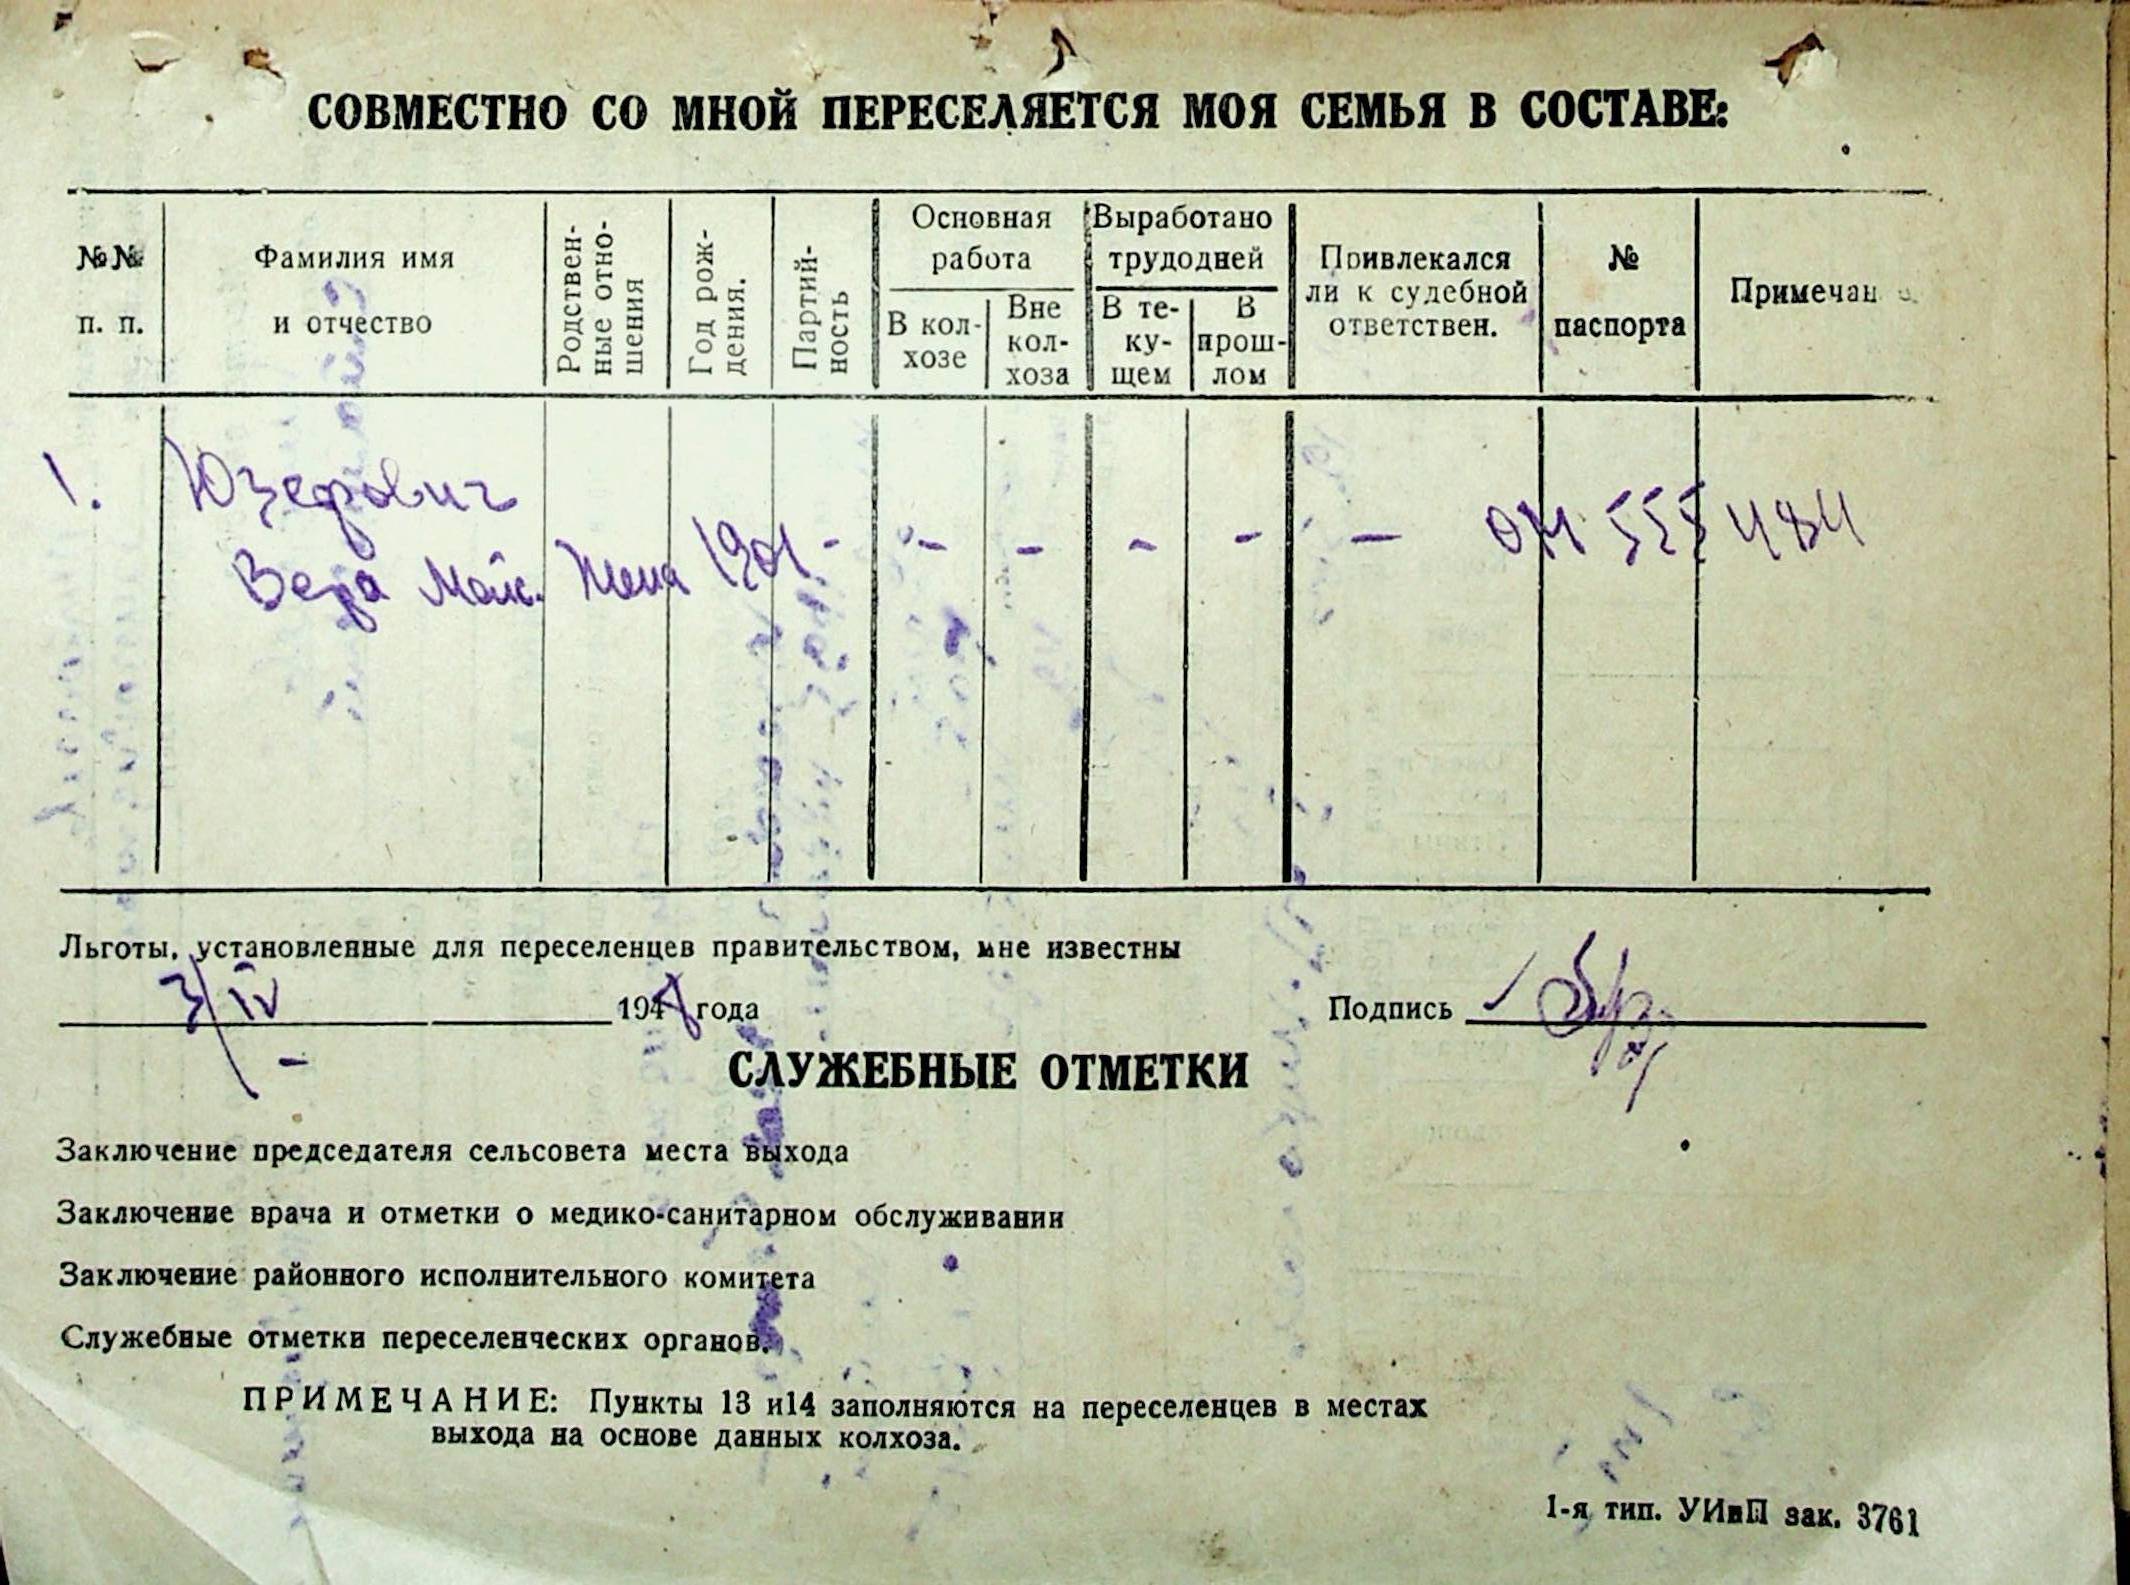 СОВМЕСТНО СО МНОЙ ПЕРЕСЕЛЯЕТСЯ МОЯ СЕМЬЯ В СОСТАВЕ:
№№ п. п.
Фамилия имя и отчество
Родствен-
ные отно-
шения
Год рож-
дения.
Партий-
ность
Основная
работа
В кол-
хозе
Вне
кол-
хоза
Выработано
трудодней
В те-
ку-
щем
В
прош-
лом
Привлекался
ли к судебной
ответствен.
№
паспорта
Примечан
1. Юзефович
Вера Моис. Жена 1901 - - - - - - 555484
Льготы, установленные для переселенцев правительством, мне известны
3/IV 1948 года
Подпись
СЛУЖЕБНЫЕ ОТМЕТКИ
Заключение председателя сельсовета места выхода
Заключение врача и отметки о медико-санитарном обслуживании
Заключение районного исполнительного комитета
Служебные отметки переселенческих органов.
ПРИМЕЧАНИЕ: Пункты 13 и14 заполняются на переселенцев в местах
выхода на основе данных колхоза.
1-я тип. УИиП зак. 3761